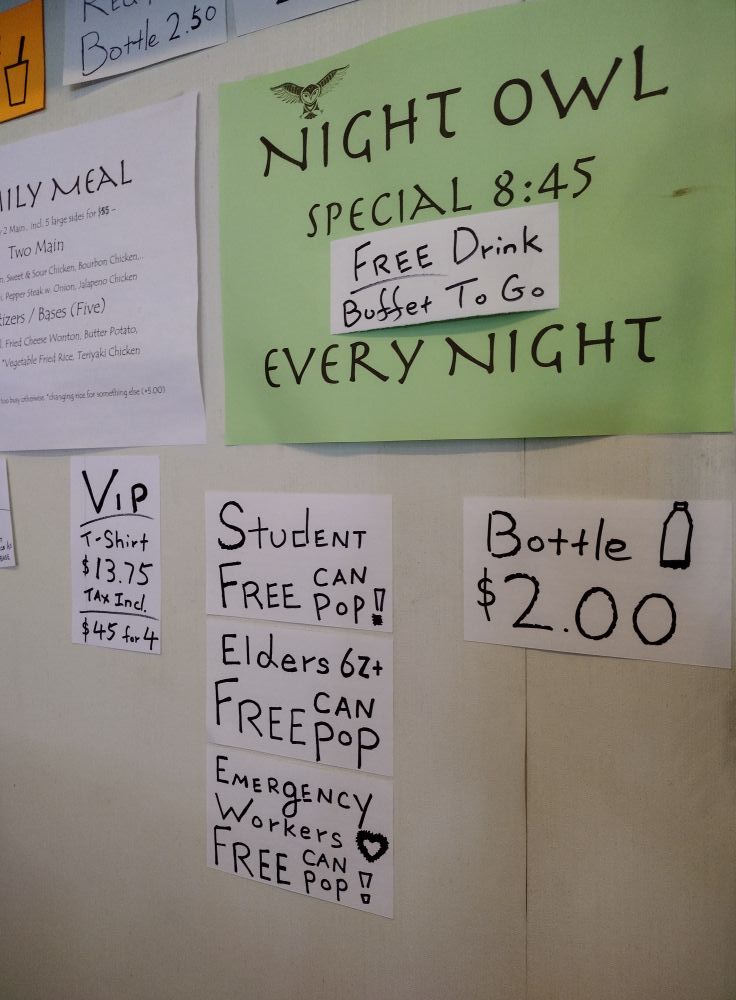 Bottle 2.50
NIGHT OWL
SPECIAL 8:45
FREE Drink
Buffet To Go
EVERY NIGHT
MEAL
2 Main, incl. 5 large sides for $55
Two Main
Sweet & Sour Chicken, Bourbon Chicken,
Pepper Steak w. Onion, Jalapeno Chicken
/ Bases (Five)
Fried Cheese Wonton, Butter Potato,
*Vegetable Fried Rice, Teriyaki Chicken
too busy otherwise. *changing rice for something else (+5.00)
VIP
T-Shirt
$13.75
TAX Incl.
$45 for 4
STUDENT
FREE CAN
POP!
Elders 62+
FREE CAN
POP
EMERGENCY
Workers
FREE CAN
POP!
Bottle
$2.00